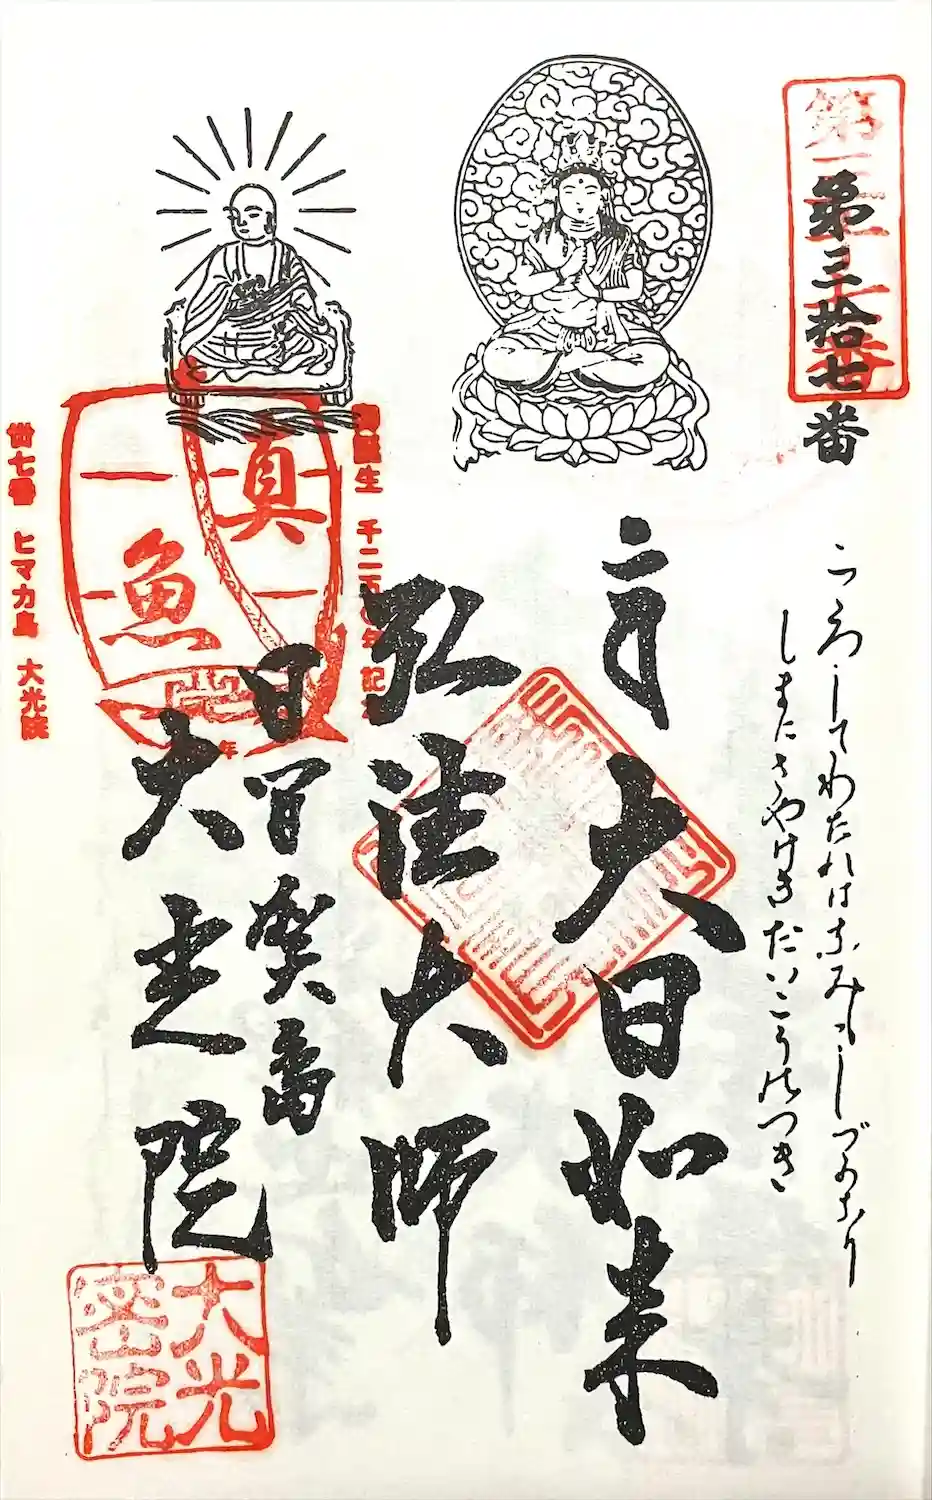 第三十七番
第三拾七番
こゝろしてわたれはうみもしづかなり
しまにさやけきだいこうのつき
大日如来
弘法大師
日間賀島
大光院
真魚
卅七番 ヒマカ島 大光院
大光密院